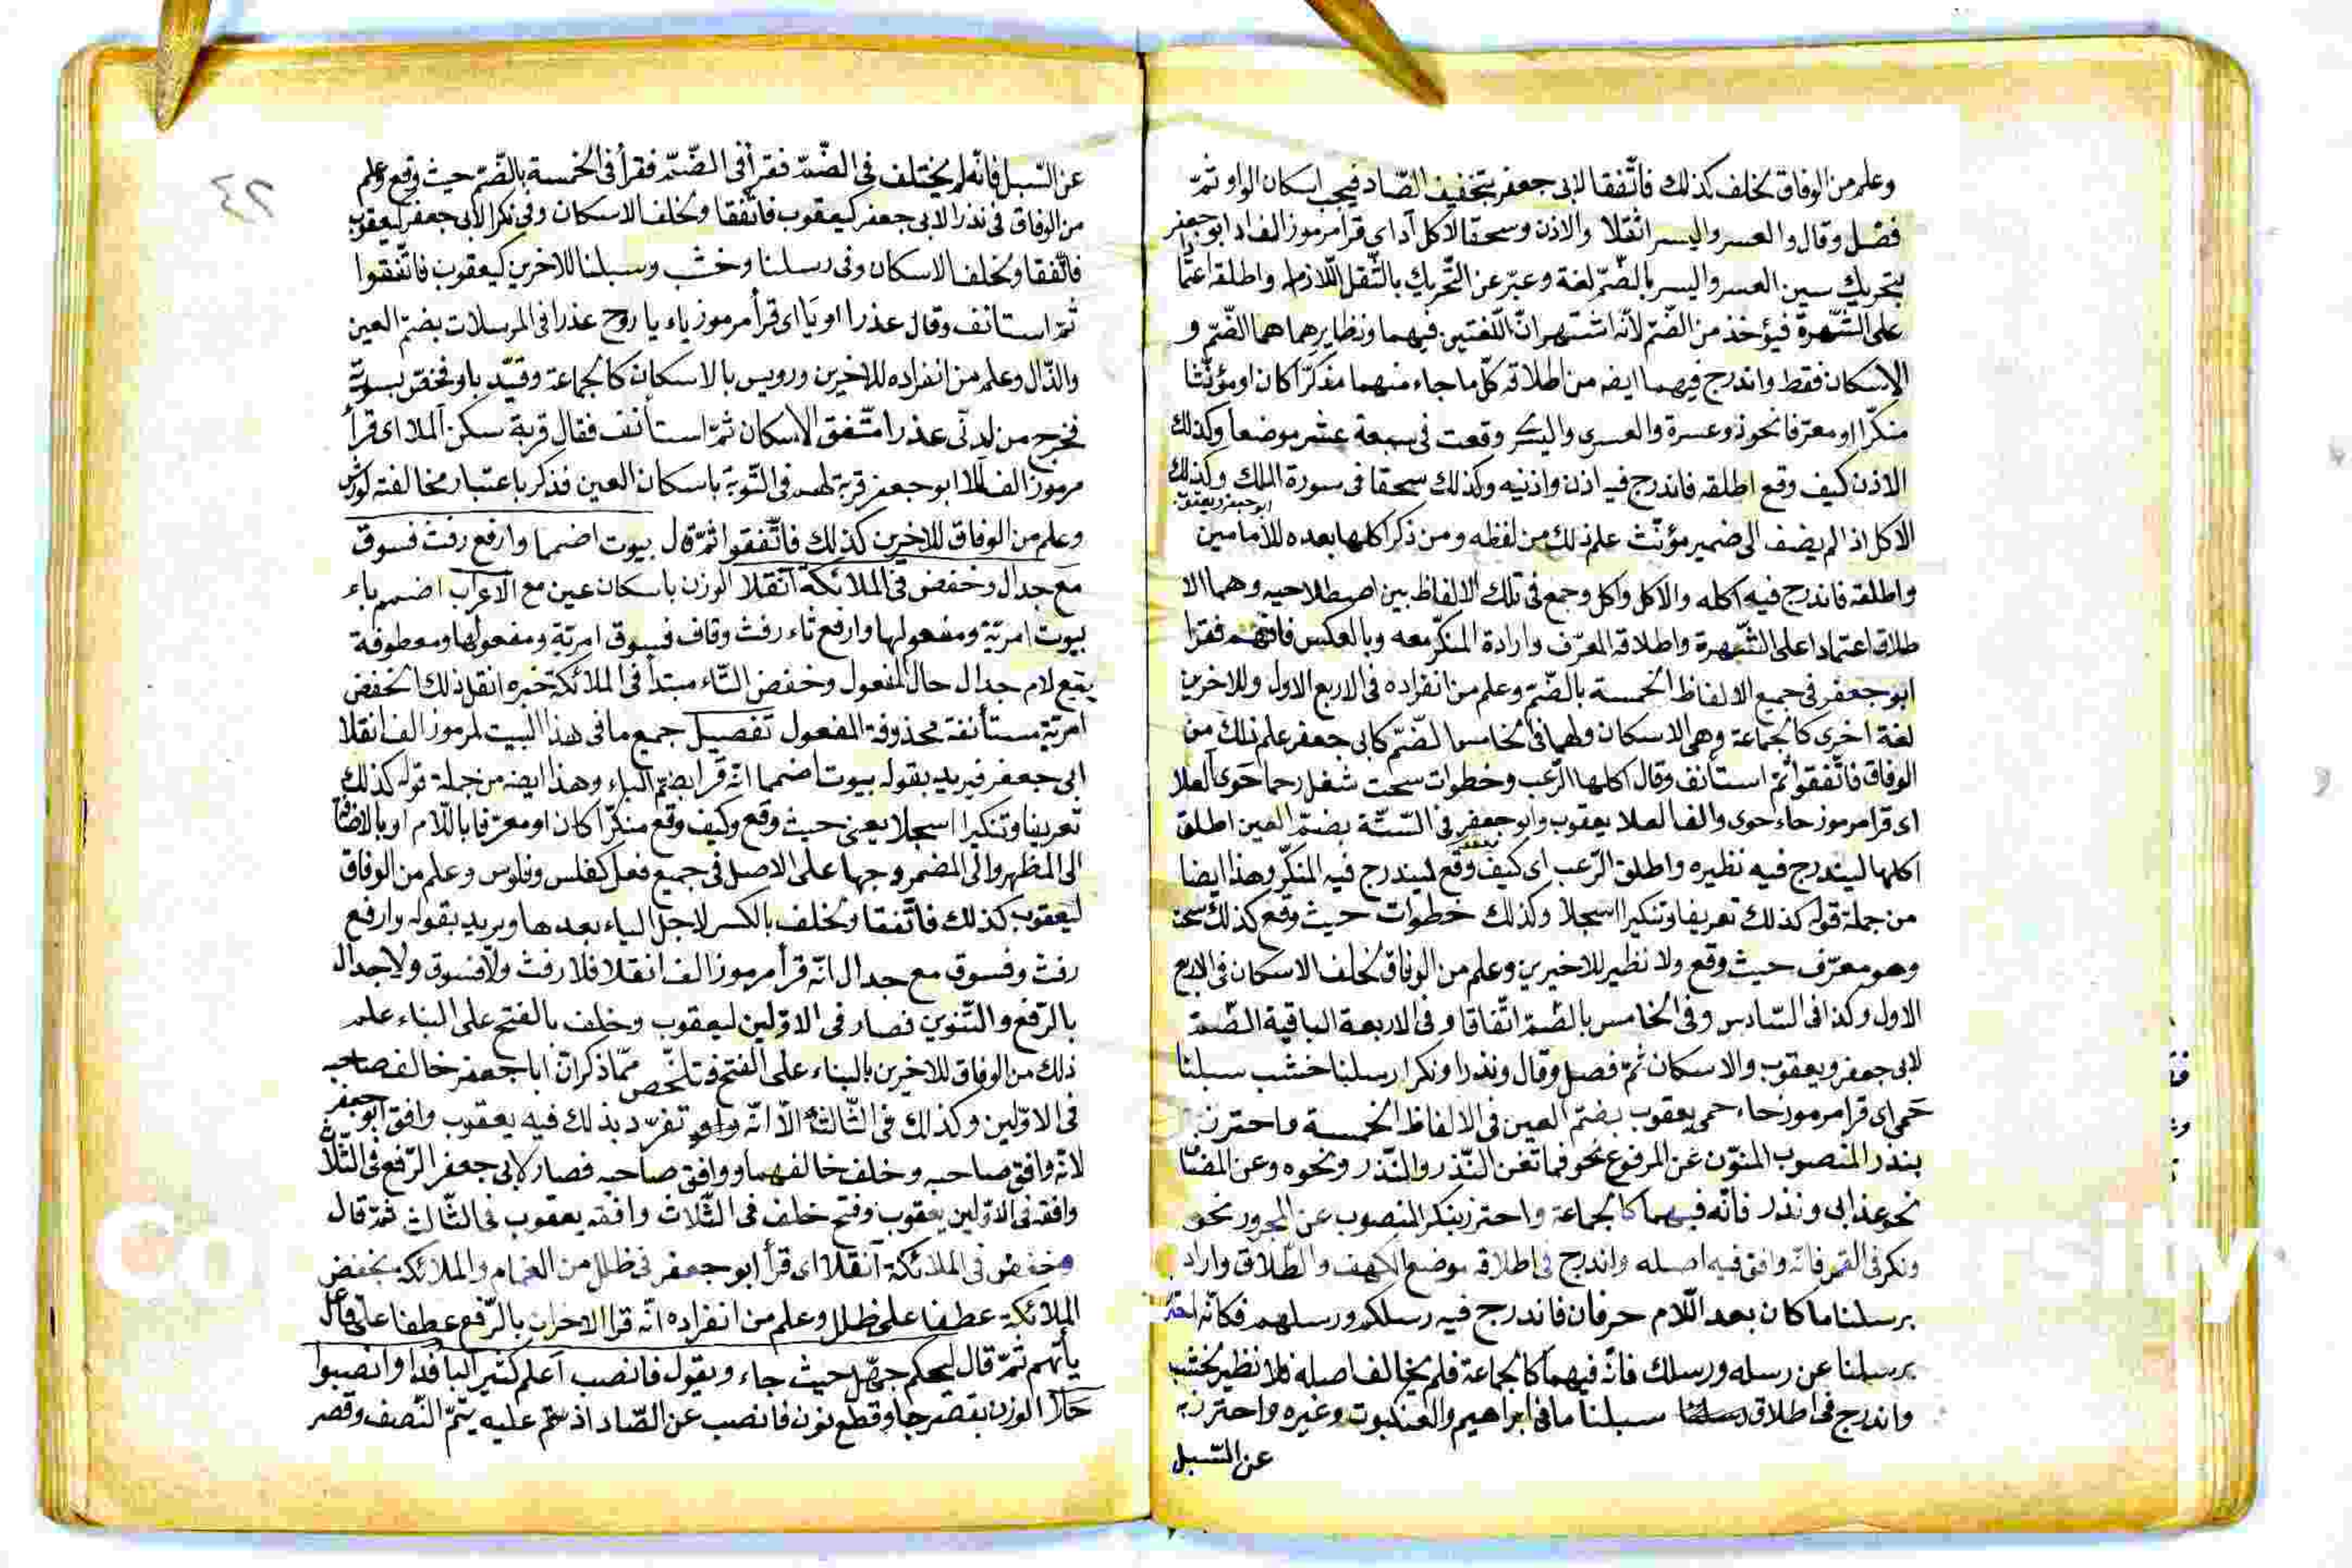 وعلم من الوفاق لخلف كذلك فاتّفقا لابى جعفر بتخفيف الصّاد فيجب اسكان الواو ثمّ
فصّل وقال والعسر واليسر اثقلا والاذن وسحقا الاكل آد اى قرا مرموز الف اد ابو جعفر
بتحريك سين العسر واليسر بالضّمّ لغة وعبّر عن التّحريك بالثّقل اللّازم واطلقه اعتمادا
على الشّهرة فيؤخذ من الضّم لانّه اشتهر انّ اللّغتين فيهما ونظايرهما هما الضّمّ و
الاسكان فقط واندرج فيهما ايضه من اطلاقه كلّ ما جاء منهما مذكّرا كان او مؤنّثا
منكّرا او معرّفا نحو ذو عسرة والعسرى واليسر وقعت فى سبعة عشر موضعا وكذلك
الاذن كيف وقع اطلقه فاندرج فيه اذن واذنيه وكذلك سحقا فى سورة الملك وكذلك
ابو جعفر ويعقوب
الاكل اذ الم يضف الى ضمير مؤنّث علم ذلك من لفظه ومن ذكر اكلها بعده للامامين
واطلقه فاندرج فيه اكله والاكل واكل وجمع فى تلك الالفاظ بين اصطلاحيه وهما الا
طلاق اعتمادا على الشّهرة واطلاقه المعرّف وارادة المنكّر معه وبالعكس فافهم فقرا
ابو جعفر فى جميع الالفاظ الخمسة بالضّم وعلم من انفراده فى الاربع الاول وللاخرين
لغة اخرى كالجماعة وهى الاسكان ولهما فى الخامس الضّمّ كابى جعفر علم ذلك من
الوفاق فاتّفقوا ثمّ استأنف وقال اكلها الرّعب وخطوات سحت شغل رحما حوى العلا
اى قرا مرموز حاء حوى والف العلا يعقوب وابو جعفر فى السّتّة بضمّ العين اطلق
اكلها ليندرج فيه نظيره واطلق الرّعب اى كيف وقع ليندرج فيه المنكّر وهذا ايضا
من جملة قوله كذلك تعريفا وتنكيرا اسجلا وكذلك خطوات حيث وقع كذلك سحت
وهو معرّف حيث وقع ولا نظير للاخيرين وعلم من الوفاق لخلف الاسكان فى الاربع
الاول وكذا فى السّادس وفى الخامس بالضّمّ اتّفاقا وفى الاربعة الباقية الضّمّ
لابى جعفر ويعقوب والاسكان ثمّ فصل وقال ونذرا ونكرا رسلنا خشب سبلنا
حمى اى قرا مرموز حاء حمى يعقوب بضمّ العين فى الالفاظ الخمسة واحترز
بنذر المنصوب المنوّن عن المرفوع نحو فما تغن النّذر والنّذر ونحوه وعن المضاف
نحو عذابى ونذر فانّه فيهما كالجماعة واحترز بنكر المنصوب عن المجرور نحو
ونكر فى القمر فانّه وافق فيه اصله واندرج فى اطلاقه موضع الكهف والطّلاق واراد
برسلنا ما كان بعد اللّام حرفان فاندرج فيه رسلكم ورسلهم فكانّه احترز
برسلنا عن رسله ورسلك فانّه فيهما كالجماعة فلم يخالف اصله فلا نظير لخشب
واندرج فى اطلاق سبلنا ما فى ابراهيم والعنكبوت وغيره واحترز به
عن السّبل
٤٢
عن السّبل فانّه لم يختلف فى الضّمّ فقرأ فى الضّمّ فقرأ فى الخمسة بالضّم حيث وقع وعلم
من الوفاق فى نذرا لابى جعفر كيعقوب فاتّفقا ولخلف الاسكان وفى نكرا لابى جعفر كيعقوب
فاتّفقا ولخلف الاسكان وفى رسلنا وخشب وسبلنا للاخرين كيعقوب فاتّفقوا
ثمّ استانف وقال عذرا او يا اى قرأ مرموز ياء يا روح عذرا فى المرسلات بضمّ العين
والذّال وعلم من انفراده للاخرين ورويس بالاسكان كالجماعة وقيّد باو
فخرج من لدنّى عذرا متّفق الاسكان ثمّ استأنف فقال قربة سكن الملا اى قرأ
مرموز الف الملا ابو جعفر قربة لهم فى التّوبة باسكان العين فذكر باعتبار مخالفته لورش
وعلم من الوفاق للاخرين كذلك فاتّفقوا ثمّ قال بيوت اضمما وارفع رفث فسوق
مع جدال وخفض فى الملائكة انقلا الوزن باسكان عين مع الاعراب اضمم باء
بيوت امريّة ومفعولها وارفع ثاء رفث وقاف فسوق امريّة ومفعولها ومعطوفة
يتبع لام جدال حال المفعول وخفض التّاء مبتدأ فى الملائكة خبره انقل ذلك الخفض
امريّة مستأنفة محذوفة المفعول تفصيل جميع ما فى هذا البيت لمرموز الف انقلا
ابى جعفر فيريد بقوله بيوت اضمما انّه قرا بضمّ الباء وهذا ايضه من جملة قوله كذلك
تعريفا وتنكيرا اسجلا يعنى حيث وقع وكيف وقع منكّرا كان او معرّفا باللّام او بالاضافة
الى المظهر والى المضمر وجها على الاصل فى جميع فعل كفلس وفلوس وعلم من الوفاق
ليعقوب كذلك فاتّفقا ولخلف بالكسر لاجل الياء بعدها ويريد بقوله وارفع
رفث وفسوق مع جدال انّه قرأ مرموز الف انقلا فلا رفث ولا فسوق ولا جدال
بالرّفع والتّنوين فصار فى الاوّلين ليعقوب وخلف بالفتح على البناء علم
ذلك من الوفاق للاخرين بالبناء على الفتح فتلخّص ممّا ذكر انّ ابا جعفر خالف صاحبه
فى الاوّلين وكذلك فى الثّالث الّا انّه تفرّد بذلك فيه يعقوب وافق ابو جعفر
لانّه وافق صاحبه وخلف خالفهما ووافق صاحبه فصار لابى جعفر الرّفع فى الثّلاث
وافقه فى الاوّلين يعقوب وفتح خلف فى الثّلاث وافقه يعقوب فى الثّالث ثمّ قال
وخفض فى الملائكة انقلا اى قرأ ابو جعفر فى ظلل من الغمام والملائكة بخفض
الملائكة عطفا على ظلل وعلم من انفراده انّه قرا الاخران بالرّفع عطفا على فاعل
يأتهم ثمّ قال ليحكم جهّل حيث جاء ويقول فانصب اعلم كثير البا فدا وانصبوا
الوزن بقصر جا وقطع نون فانصب عن الصّاد اذ ستمّ عليه يتمّ النّصف وقصر